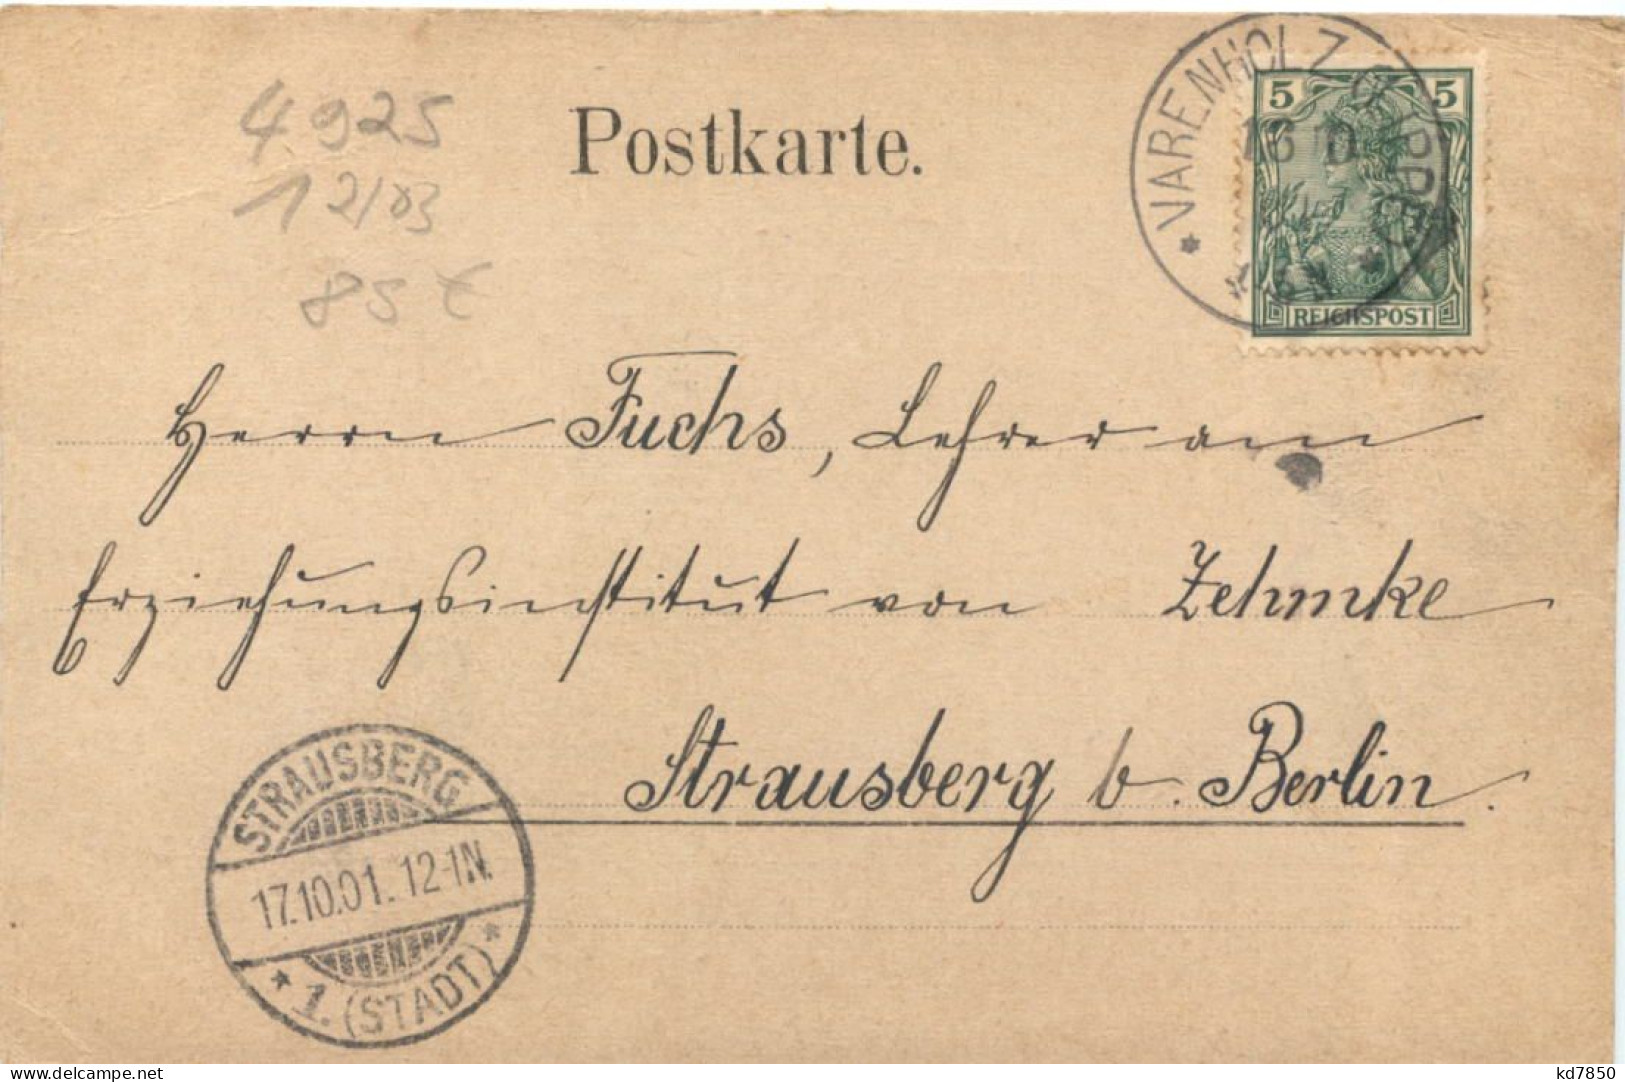 4925
12/03
85 €
Postkarte.
VARENHOLZ (LIPPE)
16 10
5 5
REICHSPOST
Herrn Fuchs, Lehrer am
Erziehungsinstitut von Zehmke
Strausberg b. Berlin.
STRAUSBERG
17.10.01. 12-1N.
* 1. (STADT) *
www.delcampe.net
kd7850